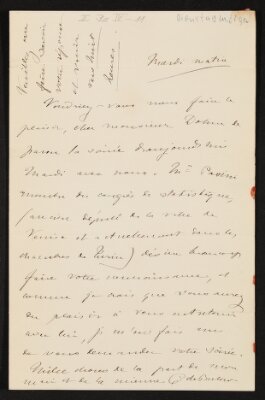 Veuillez me
faire savoir
votre réponse
et venir
vers huit
heures.
Mardi matin
Voudriez-vous nous faire le
plaisir, cher monsieur Dohrn de
passer la soirée d'aujourd'hui
Mardi avec nous. Mr
membre du congrès de statistique,
ancien député de la ville de
Venise et actuellement dans la
chambre de Turin) désire beaucoup
faire votre connaissance, et
comme je crois que vous aurez
du plaisir à vous entretenir
avec lui, je
de vous demander votre soirée.
Mille choses de la part de mon
mari et de la mienne